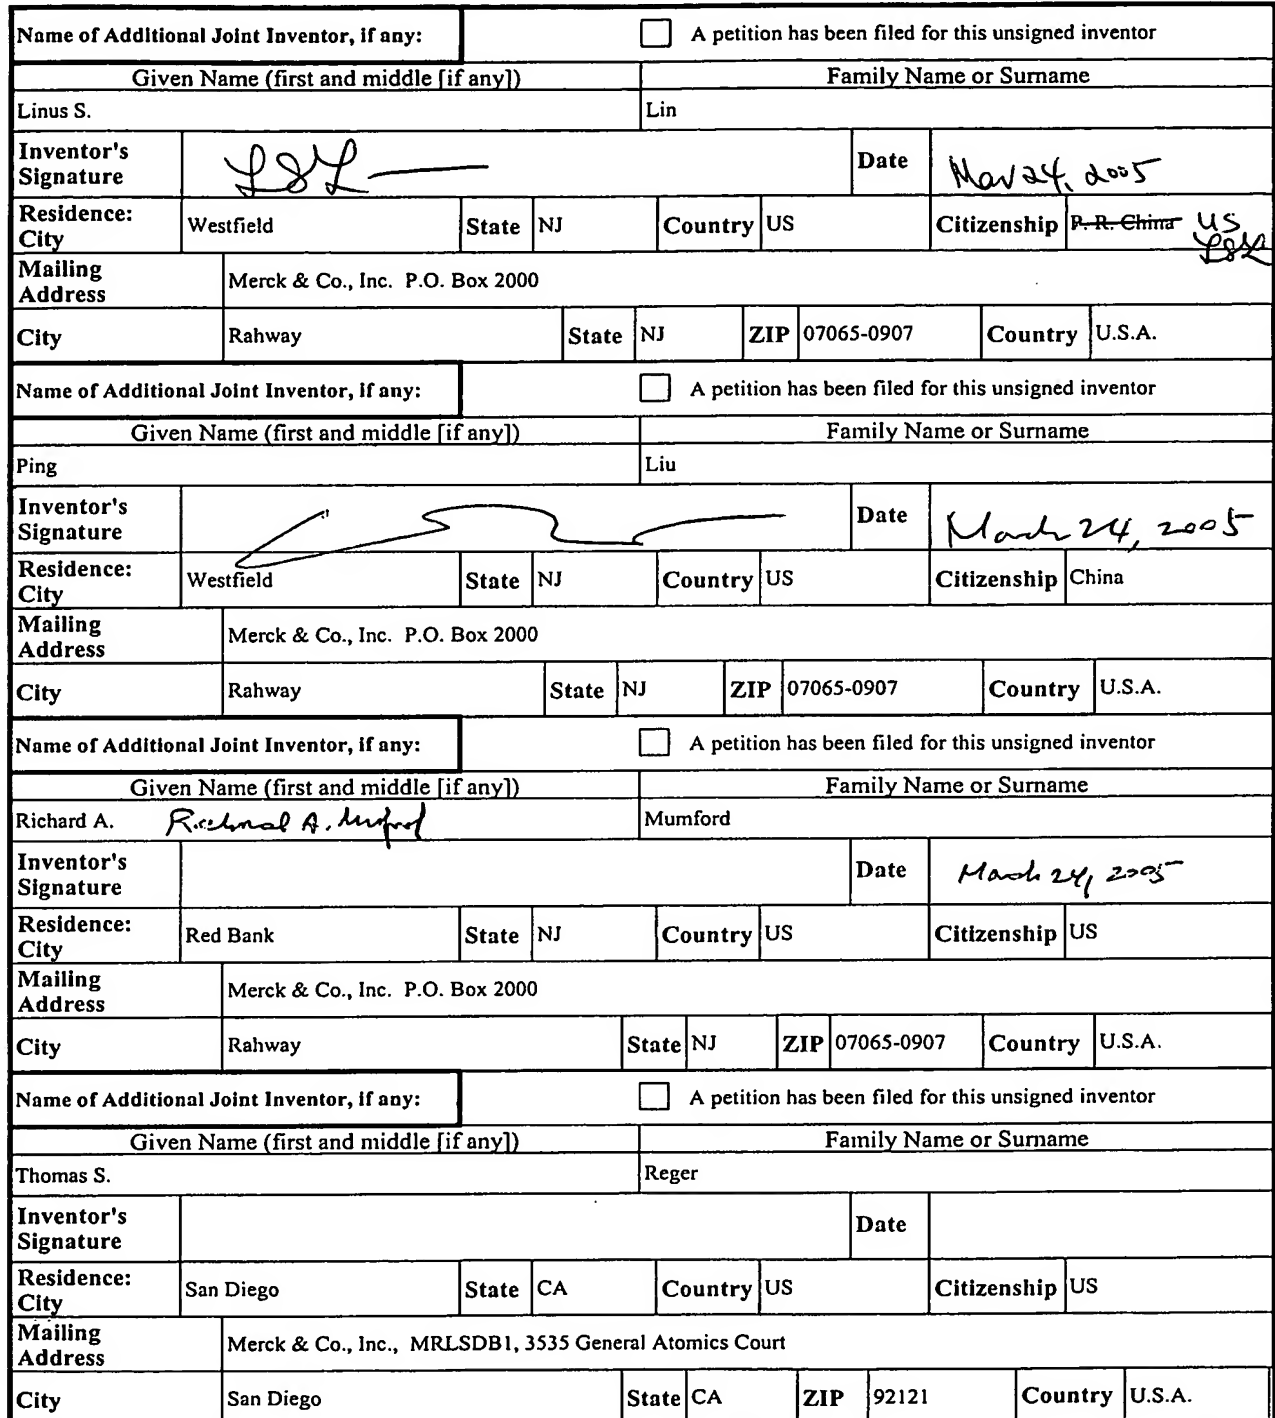 Name of Additional Joint Inventor, if any: A petition has been filed for this unsigned inventor
Given Name (first and middle [if any]) Family Name or Surname
Linus S. Lin
Inventor's Signature LSL Date Mar 24, 2005
Residence: City Westfield State NJ Country US Citizenship P. R. China US LSL
Mailing Address Merck & Co., Inc. P.O. Box 2000
City Rahway State NJ ZIP 07065-0907 Country U.S.A.
Name of Additional Joint Inventor, if any: A petition has been filed for this unsigned inventor
Given Name (first and middle [if any]) Family Name or Surname
Ping Liu
Inventor's Signature Date March 24, 2005
Residence: City Westfield State NJ Country US Citizenship China
Mailing Address Merck & Co., Inc. P.O. Box 2000
City Rahway State NJ ZIP 07065-0907 Country U.S.A.
Name of Additional Joint Inventor, if any: A petition has been filed for this unsigned inventor
Given Name (first and middle [if any]) Family Name or Surname
Richard A. Richard A. Mumford Mumford
Inventor's Signature Date March 24, 2005
Residence: City Red Bank State NJ Country US Citizenship US
Mailing Address Merck & Co., Inc. P.O. Box 2000
City Rahway State NJ ZIP 07065-0907 Country U.S.A.
Name of Additional Joint Inventor, if any: A petition has been filed for this unsigned inventor
Given Name (first and middle [if any]) Family Name or Surname
Thomas S. Reger
Inventor's Signature Date
Residence: City San Diego State CA Country US Citizenship US
Mailing Address Merck & Co., Inc., MRLSDB1, 3535 General Atomics Court
City San Diego State CA ZIP 92121 Country U.S.A.